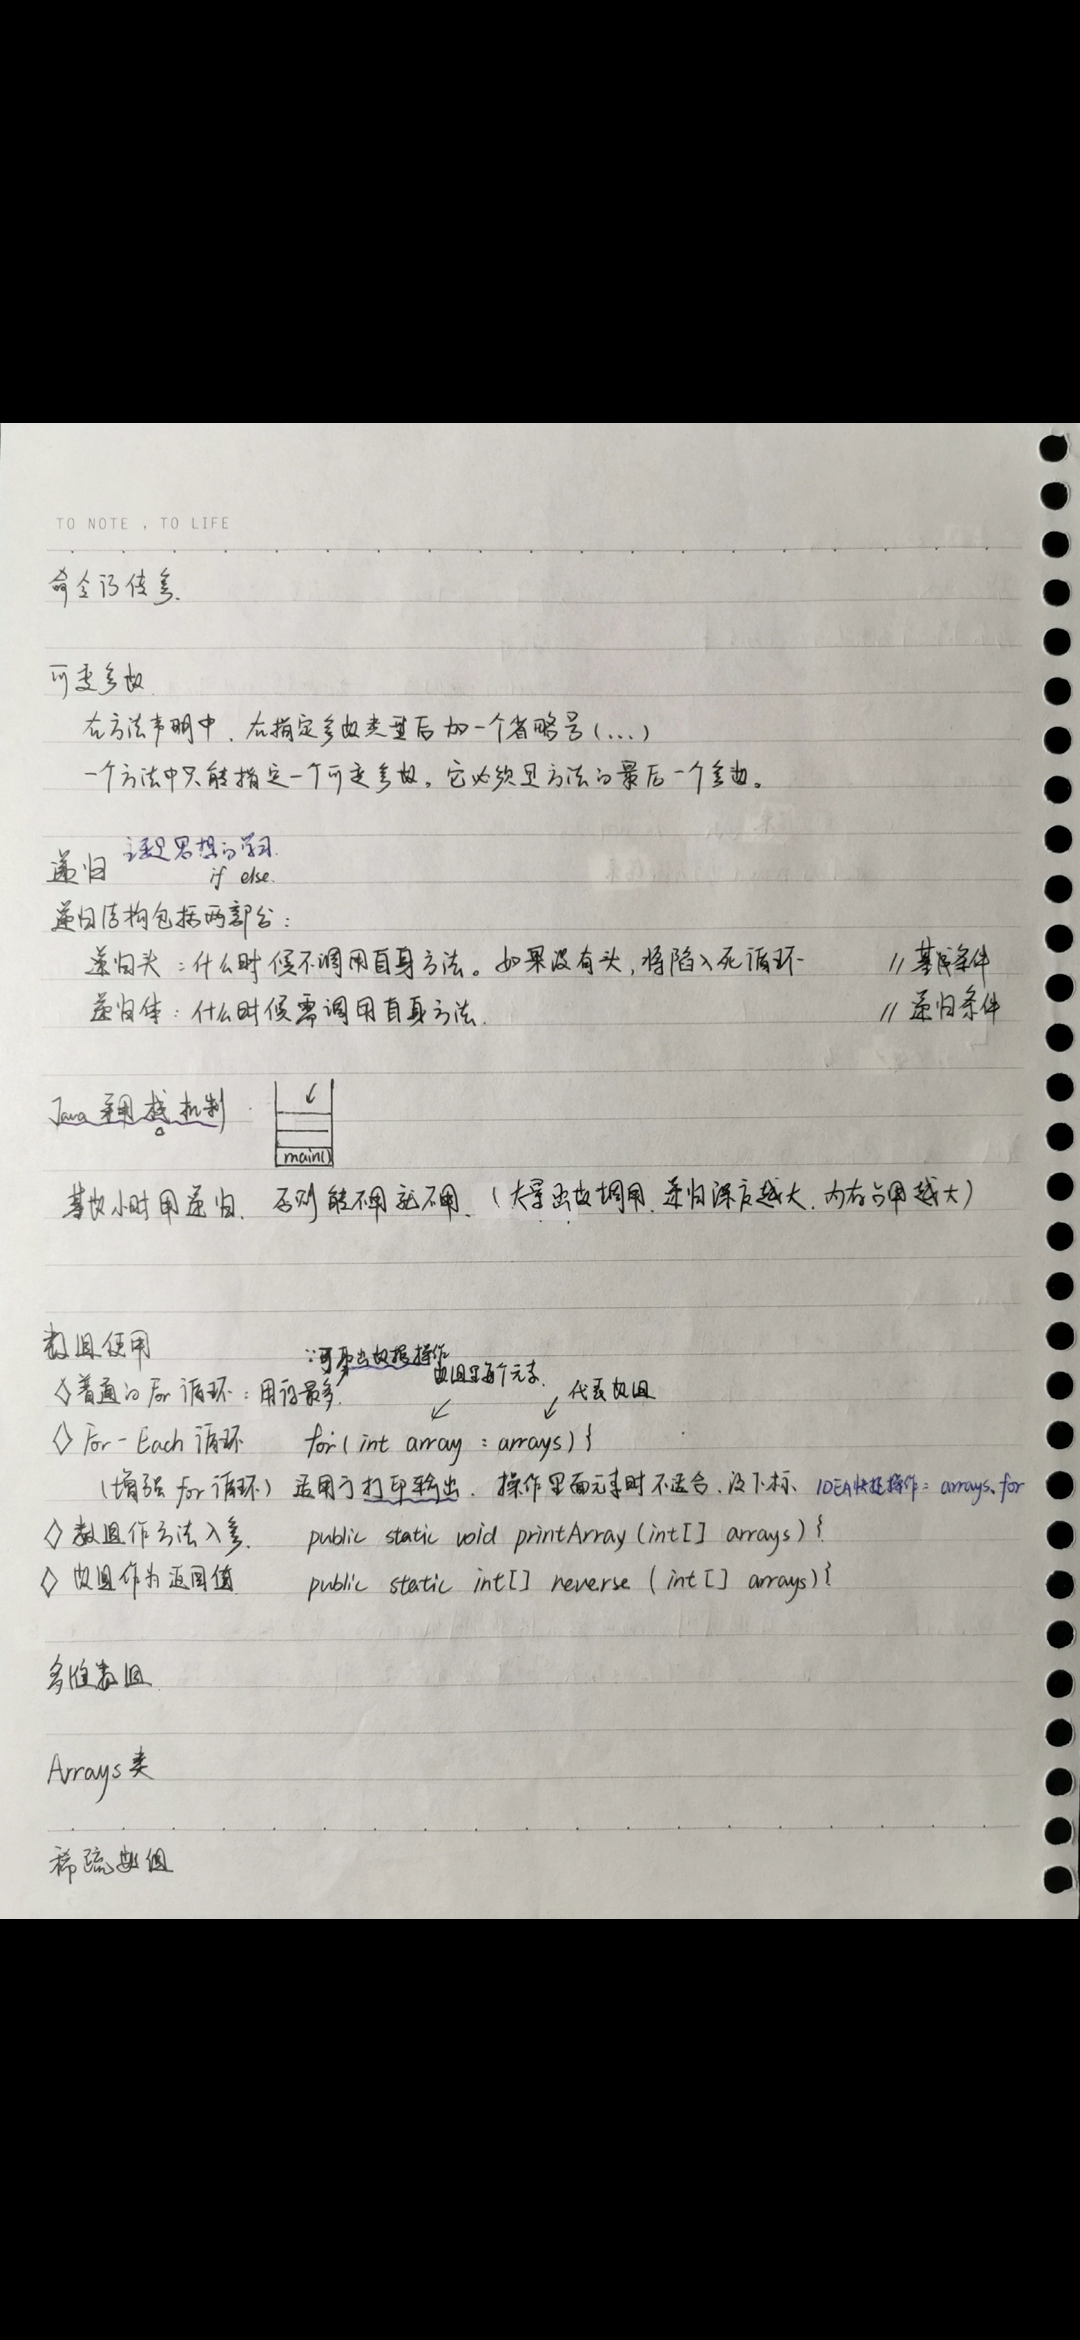 TO NOTE , TO LIFE
命令行传参.
可变参数
在方法声明中,在指定参数类型后加一个省略号(...)
一个方法中只能指定一个可变参数,它必须是方法的最后一个参数。
递归 主要是思想的学习.
if else.
递归结构包括两部分:
递归头:什么时候不调用自身方法。如果没有头,将陷入死循环 //基本条件
递归体:什么时候需调用自身方法. //递归条件
Java 采用栈机制
main()
基数小时用递归. 否则能不用就不用. (大量函数调用.递归深度越大.内存占用越大)
数组使用
∵可取出数据操作
数组里每个元素.
◇普通的For循环:用得最多. 代表数组
◇ For-Each循环 for(int array : arrays){
(增强for循环) 适用于打印输出. 操作里面元素时不适合.没下标. IDEA快捷操作: arrays.for
◇ 数组作方法入参. public static void printArray(int[] arrays){
◇ 数组作为返回值 public static int[] reverse (int[] arrays){
多维数组
Arrays类
稀疏数组